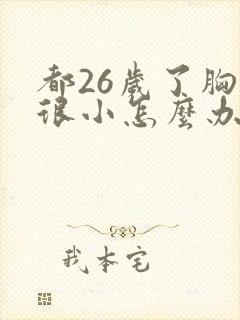 都26歲了胸
很小怎麼办
我本宅